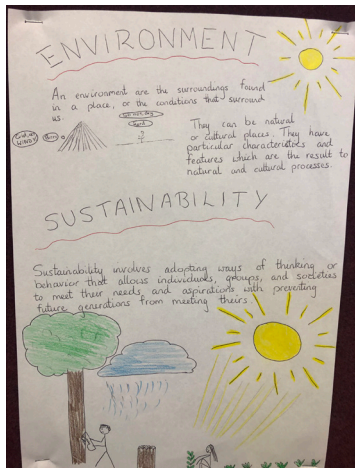 ENVIRONMENT
An environment are the surroundings found
in a place, or the conditions that surround
us.
They can be natural
or cultural places. They have
particular characteristics and
features which are the result to
natural and cultural processes.
WINDY
SUSTAINABILITY
Sustainability involves adopting ways of thinking or
behavior that allows individuals, groups, and societies
to meet their needs, and aspirations with preventing
future generations from meeting theirs.